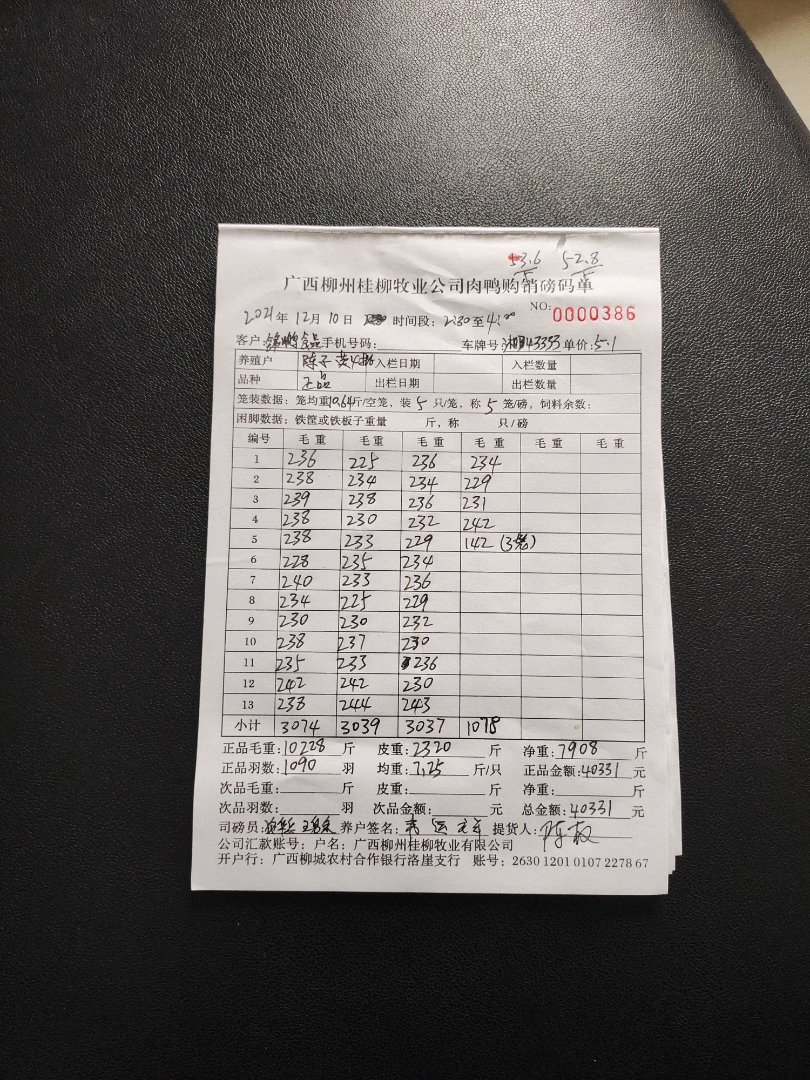 53.6 52.8
5 5
广西柳州桂柳牧业公司肉鸭购销磅码单
NO:0000386
2021年 12月 10日 时间段: 2:30至4:00
客户: 食品 手机号码: 车牌号: 43353 单价: 5.1
养殖户 陈子 入栏日期 入栏数量
品种 正品 出栏日期 出栏数量
笼装数据: 笼均重10.64斤/空笼, 装 5 只/笼, 称 5 笼/磅, 饲料余数:
困脚数据: 铁筐或铁板子重量 斤, 称 只/磅
编号 毛重 毛重 毛重 毛重 毛重 毛重
1 236 225 236 234
2 238 234 234 229
3 239 238 236 231
4 238 230 232 242
5 238 233 229 142 (3笼)
6 228 235 234
7 240 233 236
8 234 225 229
9 230 230 232
10 238 237 230
11 235 233 236
12 242 242 230
13 238 244 243
小计 3074 3039 3037 1078
正品毛重: 10228 斤 皮重: 2320 斤 净重: 7908 斤
正品羽数: 1090 羽 均重: 7.25 斤/只 正品金额: 40331 元
次品毛重: 斤 皮重: 斤 净重: 斤
次品羽数: 羽 次品金额: 元 总金额: 40331 元
司磅员: 养户签名: 提货人:
公司汇款账号: 户名: 广西柳州桂柳牧业有限公司
开户行: 广西柳城农村合作银行洛崖支行 账号: 2630 1201 0107 2278 67